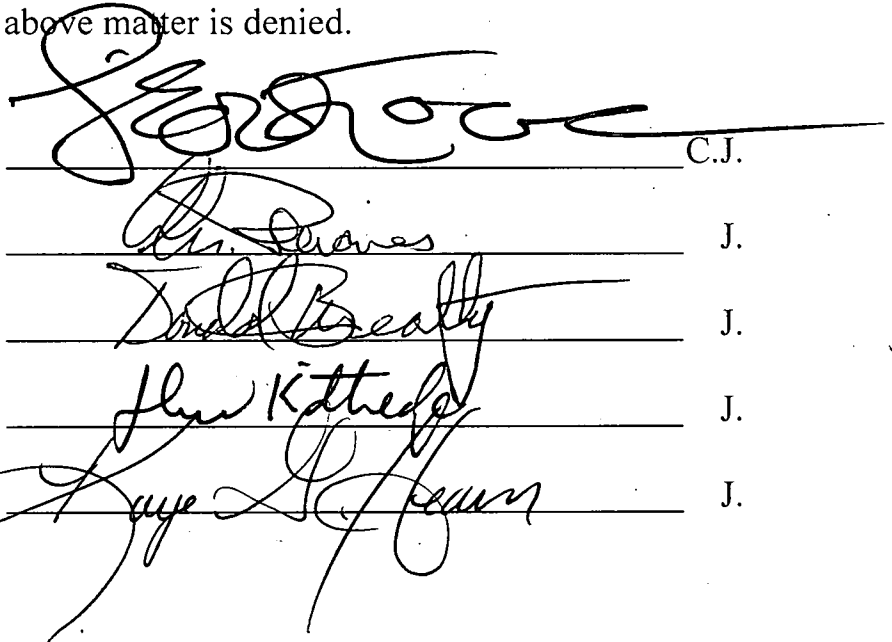 above matter is denied.
C.J.
J.
Donald Beatty J.
John Kittredge J.
Kaye G. Hearn J.